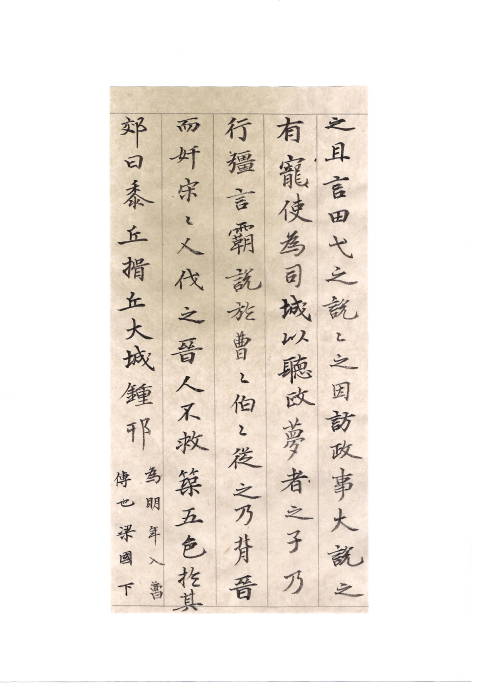 之且言田弋之說〻之因訪政事大說之
有寵使為司城以聽政夢者之子乃
行彊言霸說於曹〻伯〻從之乃背晉
而奸宋〻人伐之晉人不救築五邑於其
郊曰黍丘揖丘大城鍾邘
為明年入曹
傳也梁國下